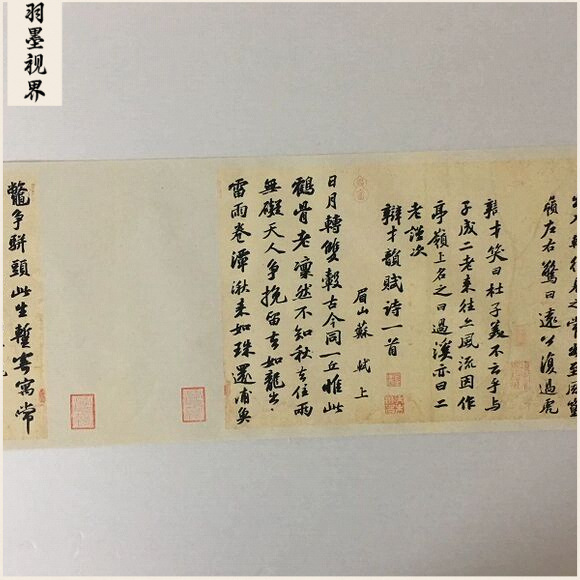 羽墨视界
嶺左右驚曰遠公復過虎
辯才笑曰杜子美不云乎與
子成二老来往亦風流因作
亭嶺上名之曰過溪亦曰二
老謹次
辯才韻賦詩一首
眉山蘇軾上
日月轉雙轂古今同一丘惟此
鶴骨老凜然不知秋去住兩
無礙天人爭挽留去如龍出
雷雨卷潭湫来如珠還浦魚
鼈爭駢頭此生暫寄寓常